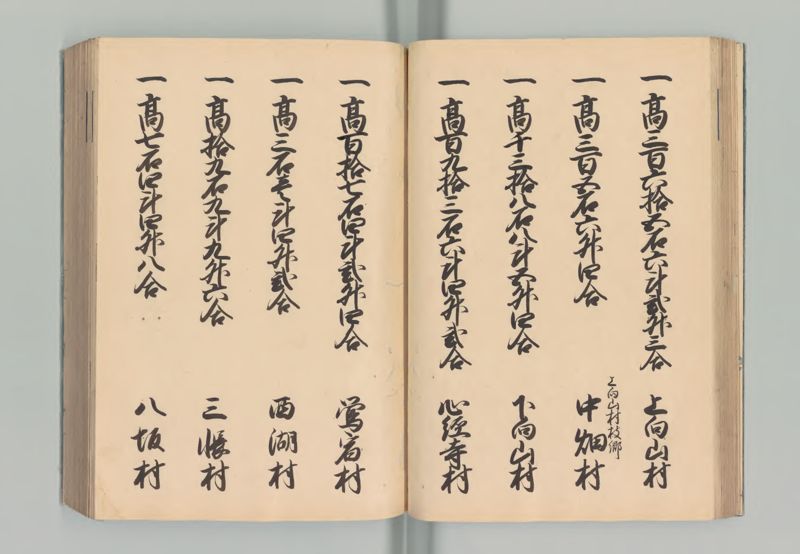 一高三百六拾五石六斗弐升三合 上向山村
一高三百五石六升四合 上向山村枝郷 中畑村
一高千三拾八石八斗五升四合 下向山村
一高百九拾三石六斗四升弐合 心經寺村
一高百拾七石四斗弐升四合 鶯宿村
一高三石壱斗四升弐合 西湖村
一高拾九石九斗九升六合 三帳村
一高七石四斗四升八合 八坂村